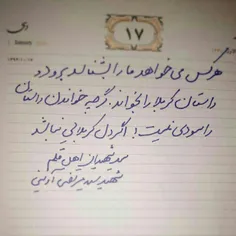 دی
۱۷
هر کس می خواهد ما را بشناسد برود و
داستان کربلا را بخواند. گرچه خواندن داستان
را سودی نیست؛ اگر دل کربلایی نباشد
سید شهیدان اهل قلم
شهید سید مرتضی آوینی